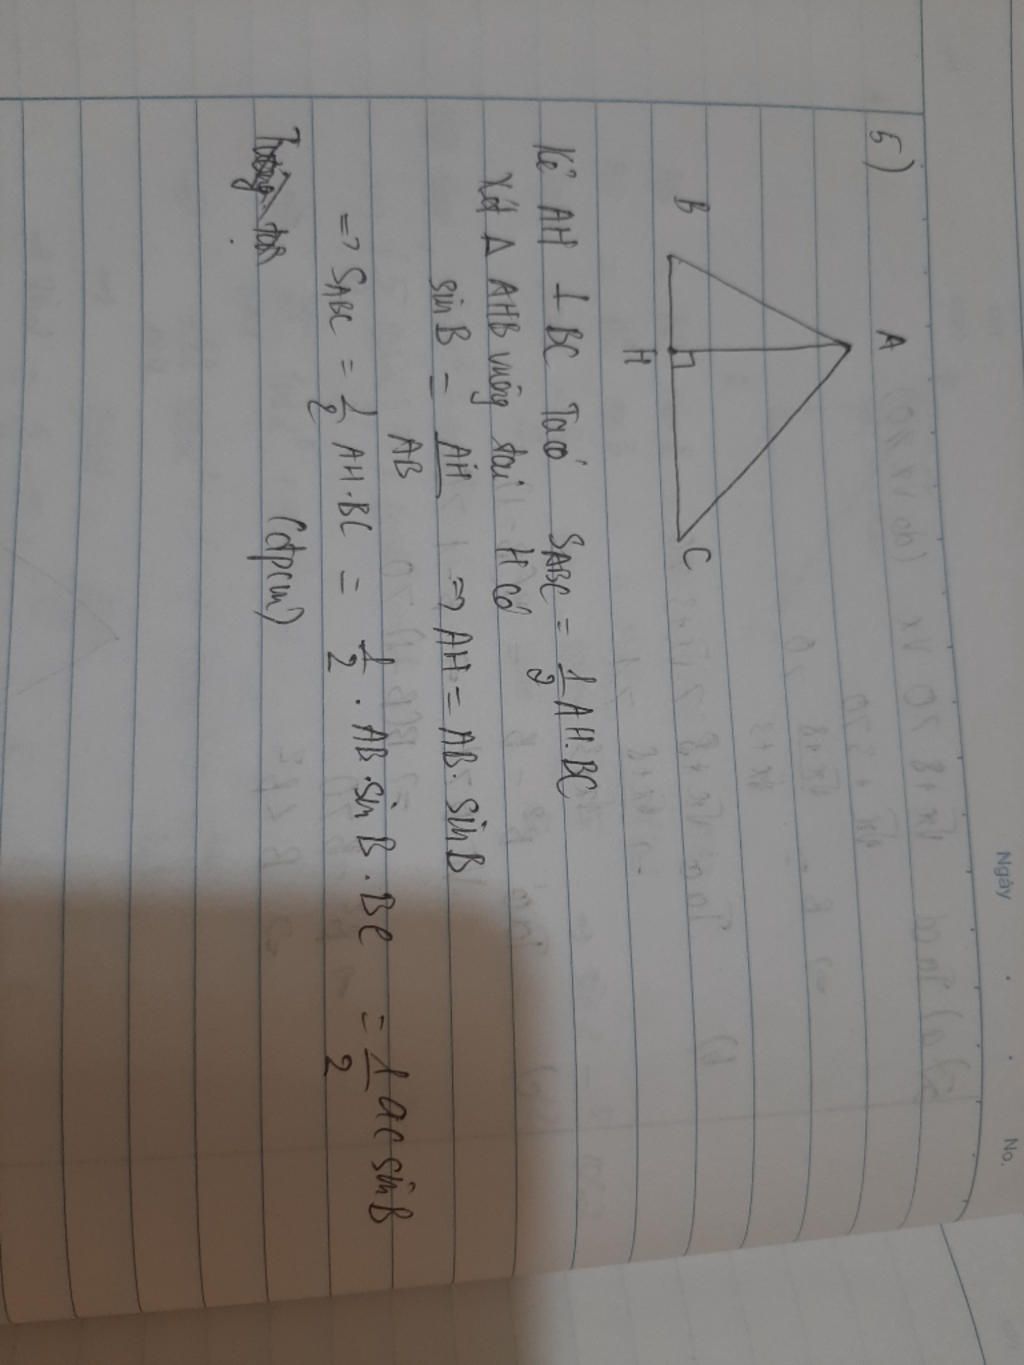 Ngày . .
No.
5)
A
B
H
C
Kẻ AH ⊥ BC Ta có S_ABC = 1/2 AH.BC
Xét Δ AHB vuông tại H có
sin B = AH/AB => AH = AB. sin B
=> S_ABC = 1/2 AH.BC = 1/2 . AB.sin B . BC = 1/2 ac sin B
(đpcm)